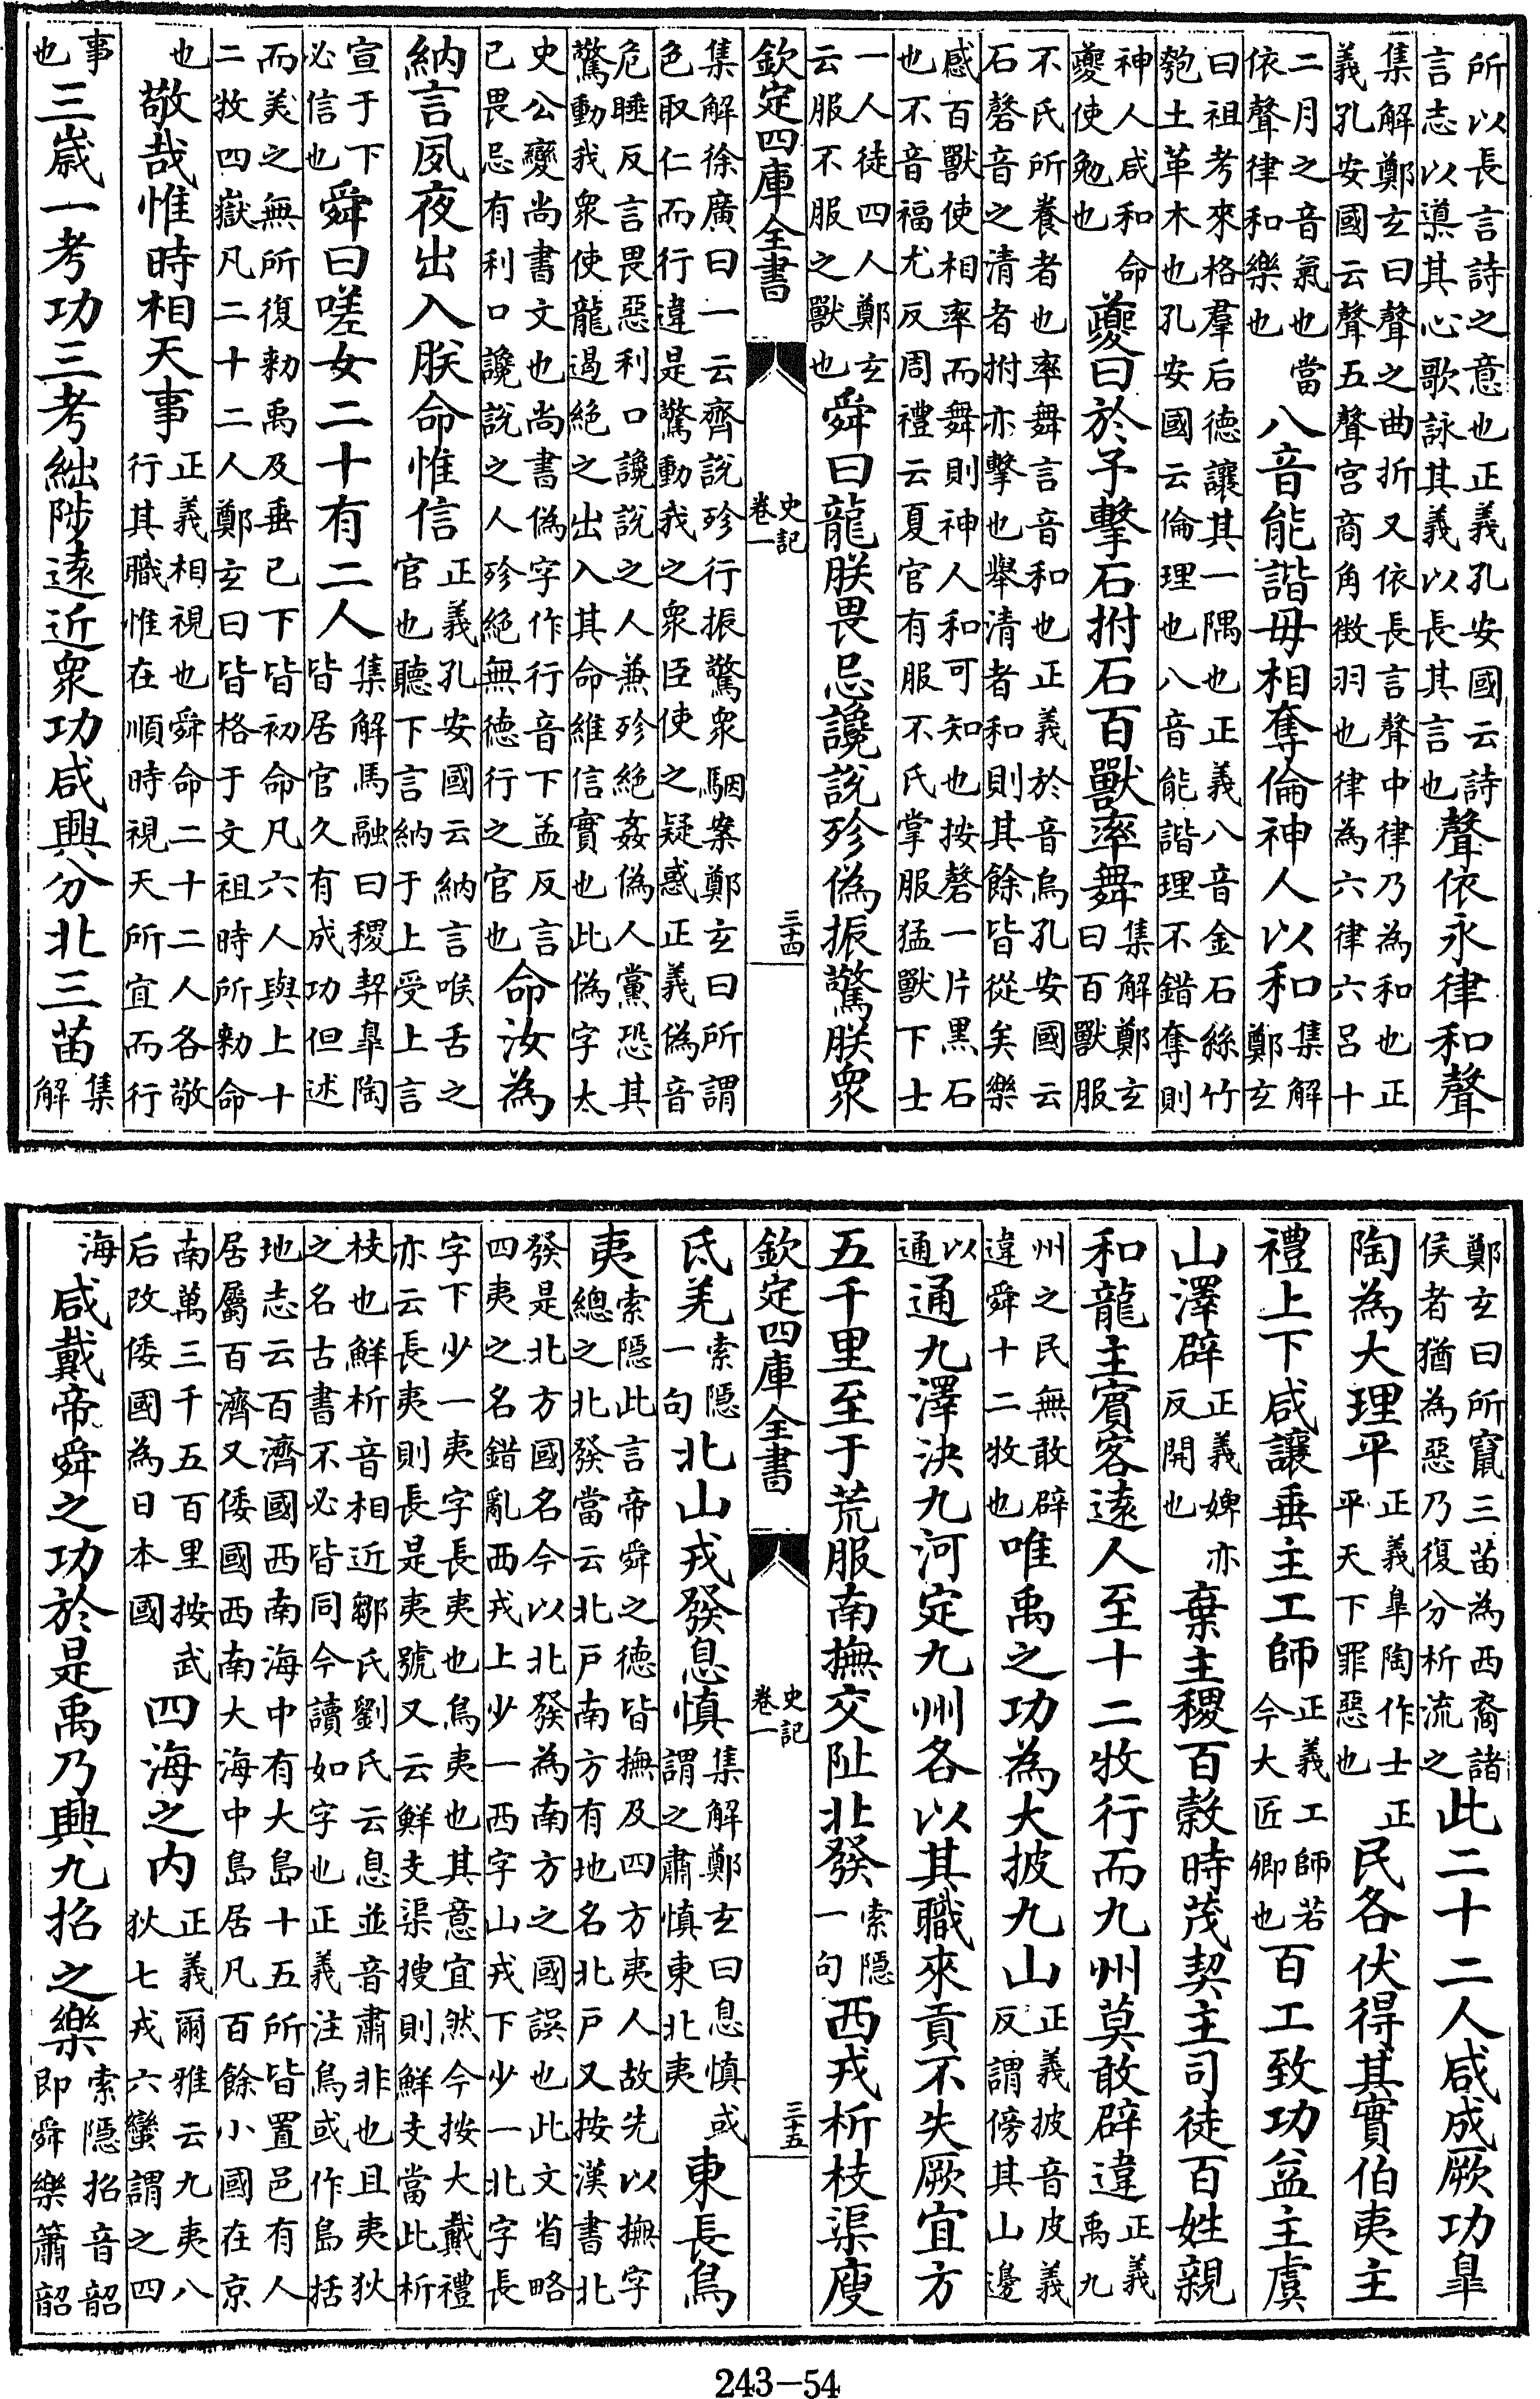 所以長言詩之意也正義孔安國云詩言志以導其心歌詠其義以長其言也聲依永律和聲
集解鄭玄曰聲之曲折又依長言聲中律乃為和也正義孔安國云聲五聲宮商角徵羽也律為六律六呂十
二月之音氣也當依聲律和樂也八音能諧毋相奪倫神人以和集解鄭玄
曰祖考來格羣后德讓其一隅也正義八音金石絲竹匏土革木也孔安國云倫理也八音能諧理不錯奪則
神人咸和命夔使勉也夔曰於予擊石拊石百獸率舞集解鄭玄曰百獸服
不氏所養者也率舞言音和也正義於音烏孔安國云石磬音之清者拊亦擊也舉清者和則其餘皆從矣樂
感百獸使相率而舞則神人和可知也按磬一片黑石也不音福尤反周禮云夏官有服不氏掌服猛獸下士
一人徒四人鄭玄云服不服之獸也舜曰龍朕畏忌讒說殄偽振驚朕衆
欽定四庫全書 史記卷一 三十四
集解徐廣曰一云齊說殄行振驚衆駰案鄭玄曰所謂色取仁而行違是驚動我之衆臣使之疑惑正義偽音
危睡反言畏惡利口讒說之人兼殄絕姦偽人黨恐其驚動我衆使龍遏絕之出入其命維信實也此偽字太
史公變尚書文也尚書偽字作行音下孟反言已畏忌有利口讒說之人殄絕無德行之官也命汝為
納言夙夜出入朕命惟信正義孔安國云納言喉舌之官也聽下言納于上受上言
宣于下必信也舜曰嗟女二十有二人集解馬融曰稷契臯陶皆居官久有成功但述
而美之無所復勑禹及垂已下皆初命凡六人與上十二牧四嶽凡二十二人鄭玄曰皆格于文祖時所勑命
也敬哉惟時相天事正義相視也舜命二十二人各敬行其職惟在順時視天所宜而行
事也三歲一考功三考絀陟遠近衆功咸興分北三苗集解
鄭玄曰所竄三苗為西裔諸侯者猶為惡乃復分析流之此二十二人咸成厥功臯
陶為大理平正義臯陶作士正平天下罪惡也民各伏得其實伯夷主
禮上下咸讓垂主工師正義工師若今大匠卿也百工致功益主虞
山澤辟正義婢亦反開也棄主稷百穀時茂契主司徒百姓親
和龍主賓客遠人至十二牧行而九州莫敢辟違正義禹九
州之民無敢辟違舜十二牧也唯禹之功為大披九山正義披音皮義反謂傍其山邊
以通通九澤決九河定九州各以其職來貢不失厥宜方
五千里至于荒服南撫交阯北發索隱一句西戎析枝渠廋
欽定四庫全書 史記卷一 三十五
氐羌索隱一句北山戎發息慎集解鄭玄曰息慎或謂之肅慎東北夷東長鳥
夷索隱此言帝舜之德皆撫及四方夷人故先以撫字總之北發當云北戶南方有地名北戶又按漢書北
發是北方國名今以北發為南方之國誤也此文省略四夷之名錯亂西戎上少一西字山戎下少一北字長
字下少一夷字長夷也鳥夷也其意宜然今按大戴禮亦云長夷則長是夷號又云鮮支渠搜則鮮支當此析
枝也鮮析音相近鄒氏劉氏云息並音肅非也且夷狄之名古書不必皆同今讀如字也正義注鳥或作島括
地志云百濟國西南海中有大島十五所皆置邑有人居屬百濟又倭國西南大海中島居凡百餘小國在京
南萬三千五百里按武后改倭國為日本國四海之內正義爾雅云九夷八狄七戎六蠻謂之四
海咸戴帝舜之功於是禹乃興九招之樂索隱招音韶即舜樂簫韶
243-54